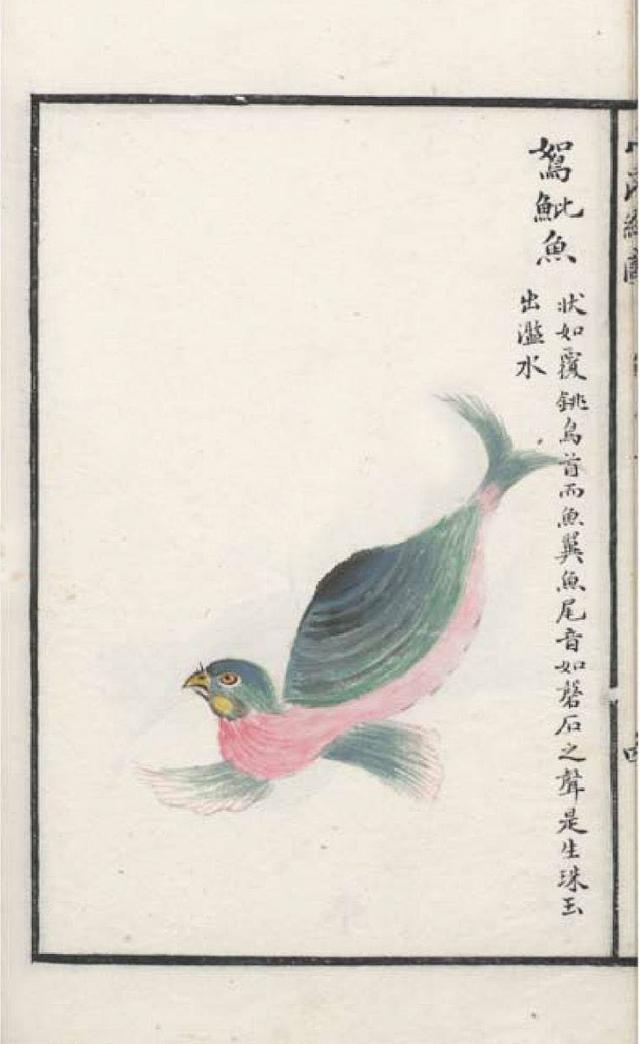 鴽魮魚
狀如覆銚鳥首而魚翼魚尾音如磬石之聲是生珠玉
出濫水